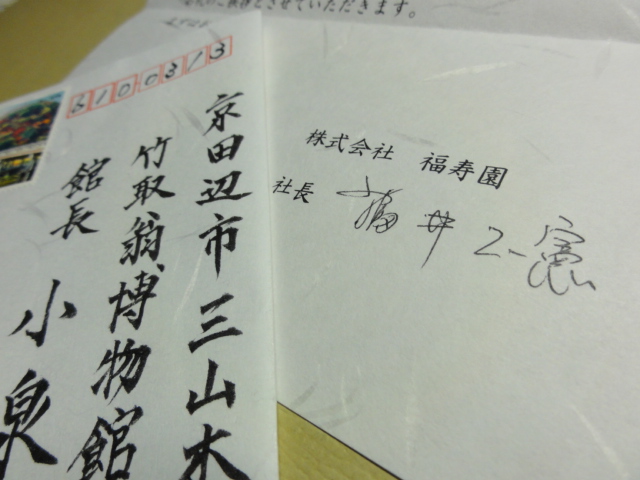 させていただきます。
6100313
京田辺市三山木
竹取翁博物館
館長
小泉
株式会社 福寿園
社長 福井正憲